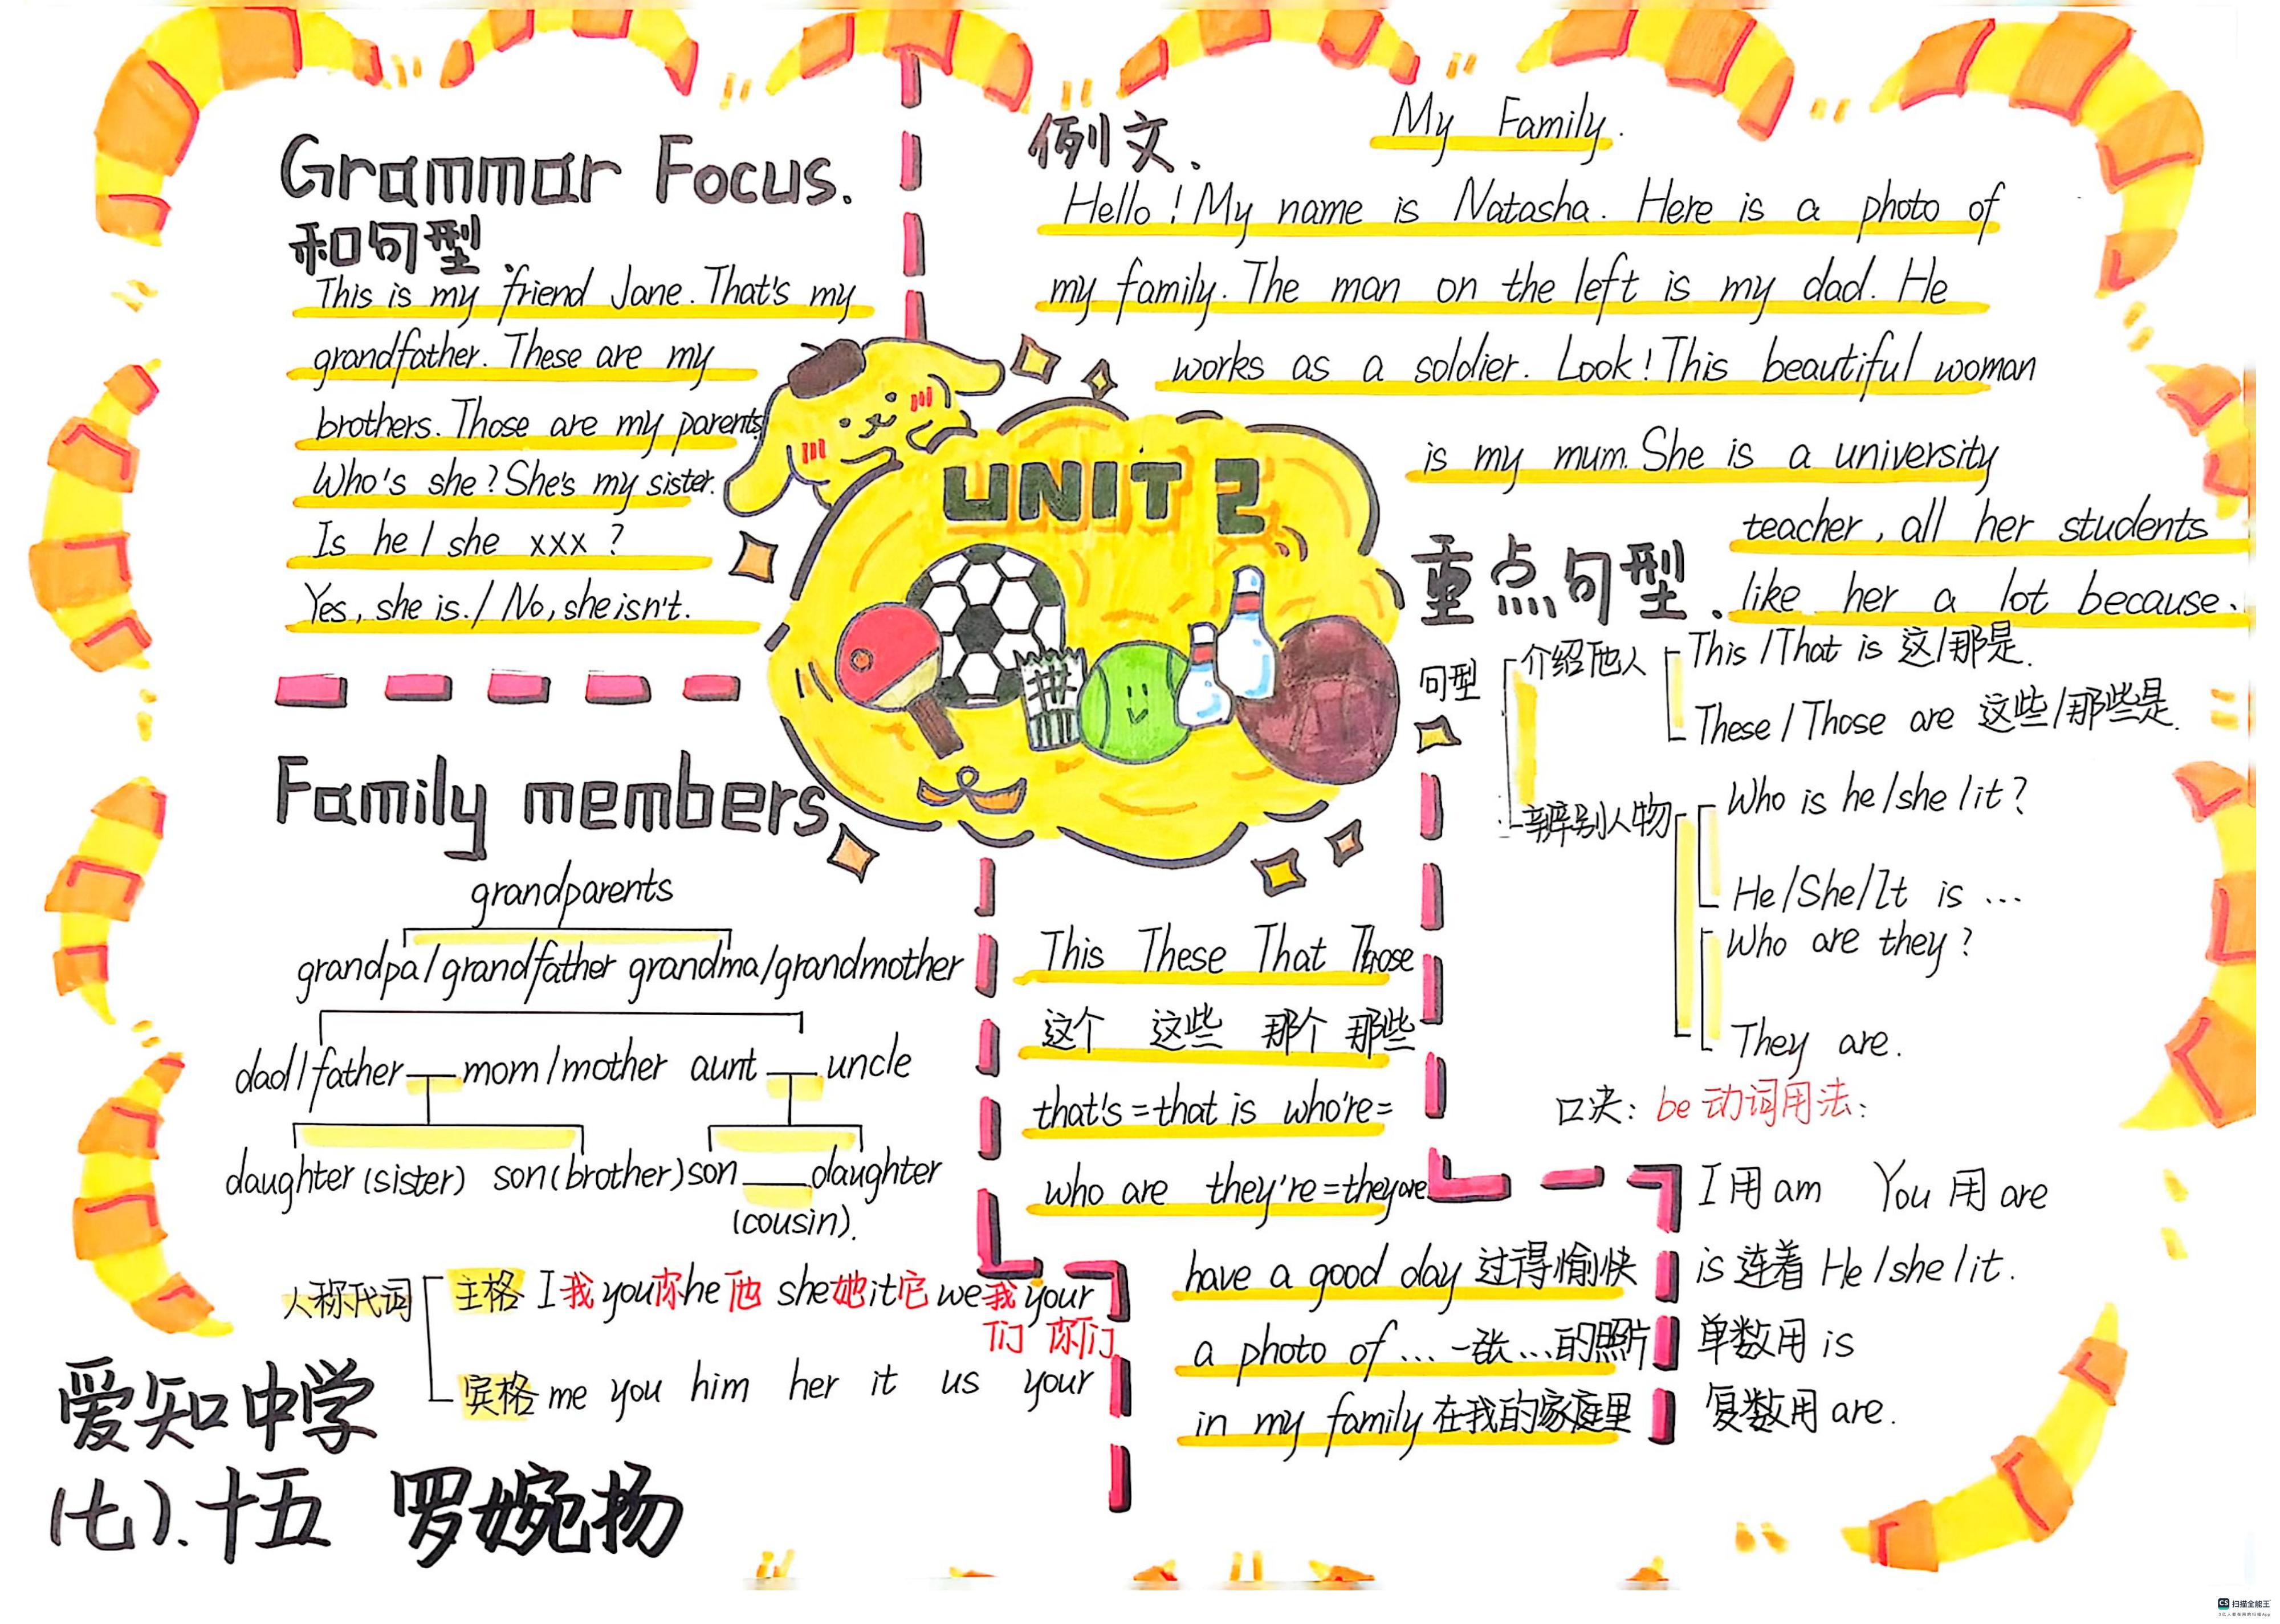 Grammar Focus.
和句型.
This is my friend Jane. That's my
grandfather. These are my
brothers. Those are my parents
Who's she? She's my sister.
Is he / she xxx ?
Yes, she is. / No, she isn't.
例文.
My Family.
Hello! My name is Natasha. Here is a photo of
my family. The man on the left is my dad. He
works as a soldier. Look! This beautiful woman
is my mum. She is a university
teacher, all her students
like her a lot because.
UNIT 2
重点句型.
句型
介绍他人
This / That is 这/那是.
These / Those are 这些/那些是.
辨别人物
Who is he / she / it?
He / She / It is ...
Who are they?
They are.
口决: be 动词用法:
I 用 am You 用 are
is 连着 He / she / it.
单数用 is
复数用 are.
Family members
grandparents
grandpa / grandfather grandma / grandmother
dad / father mom / mother aunt uncle
daughter (sister) son (brother) son daughter
(cousin).
人称代词
主格 I 我 you 你 he 他 she 她 it 它 we 我们 your 你们
宾格 me you him her it us your
This These That Those
这个 这些 那个 那些
that's = that is who're =
who are they're = they are
have a good day 过得愉快
a photo of ... 一张...的照片
in my family 在我的家庭里
爱知中学
(七).十五 罗婉扬
CS 扫描全能王